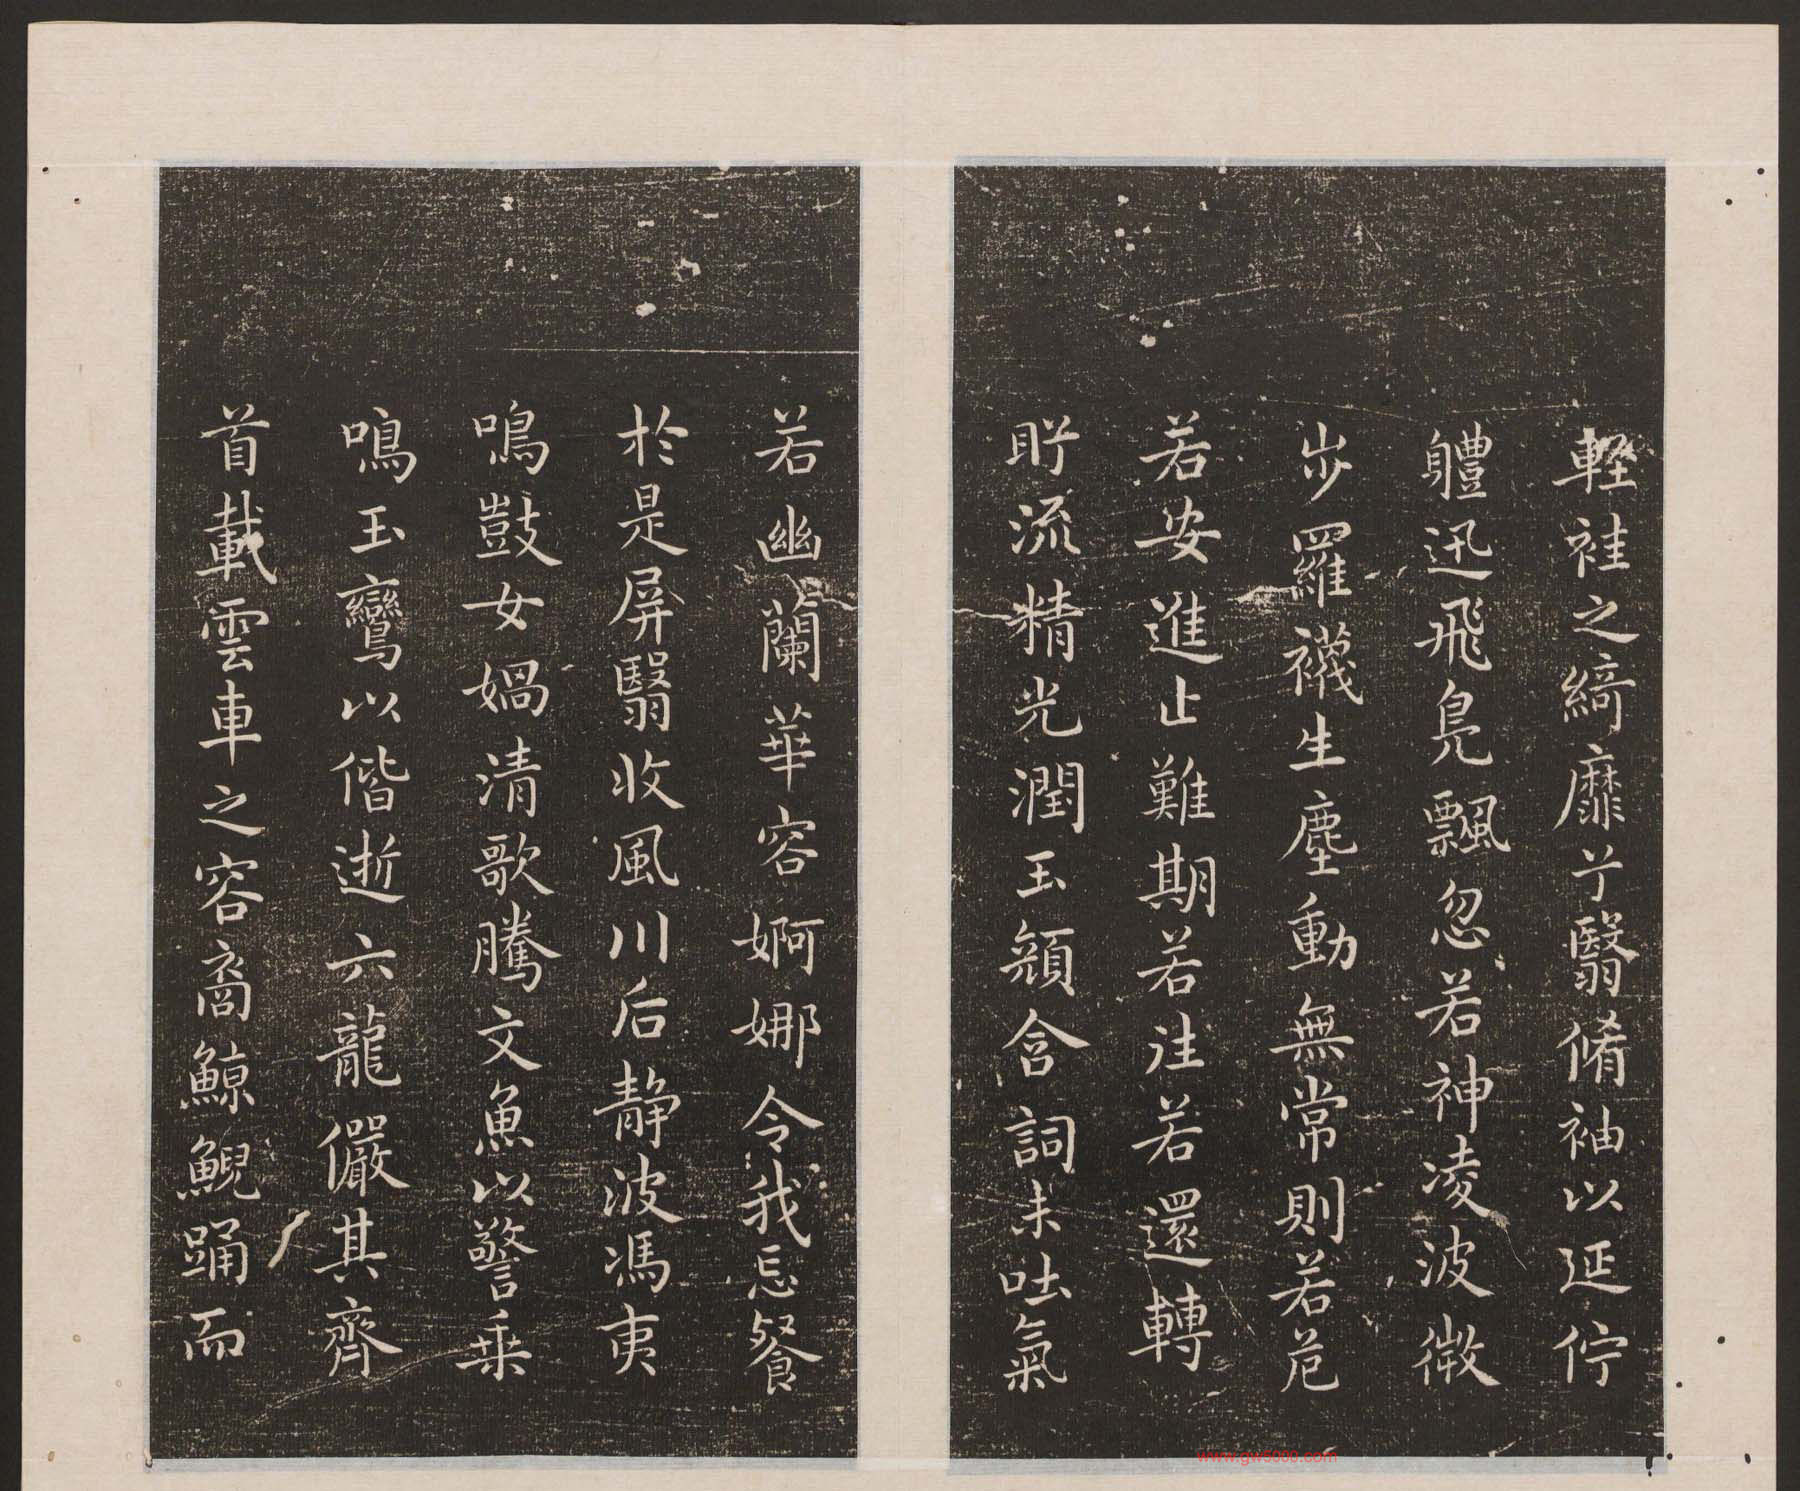 輕袿之綺靡兮翳脩袖以延佇
軆迅飛鳧飄忽若神凌波微
步羅襪生塵動無常則若危
若安進止難期若往若還轉
眄流精光潤玉顏含詞未吐氣
若幽蘭華容婀娜令我忘餐
於是屏翳收風川后静波馮夷
鳴鼓女媧清歌騰文魚以警乘
鳴玉鸞以偕逝六龍儼其齊
首載雲車之容裔鯨鯢踊而
www.gw5000.com